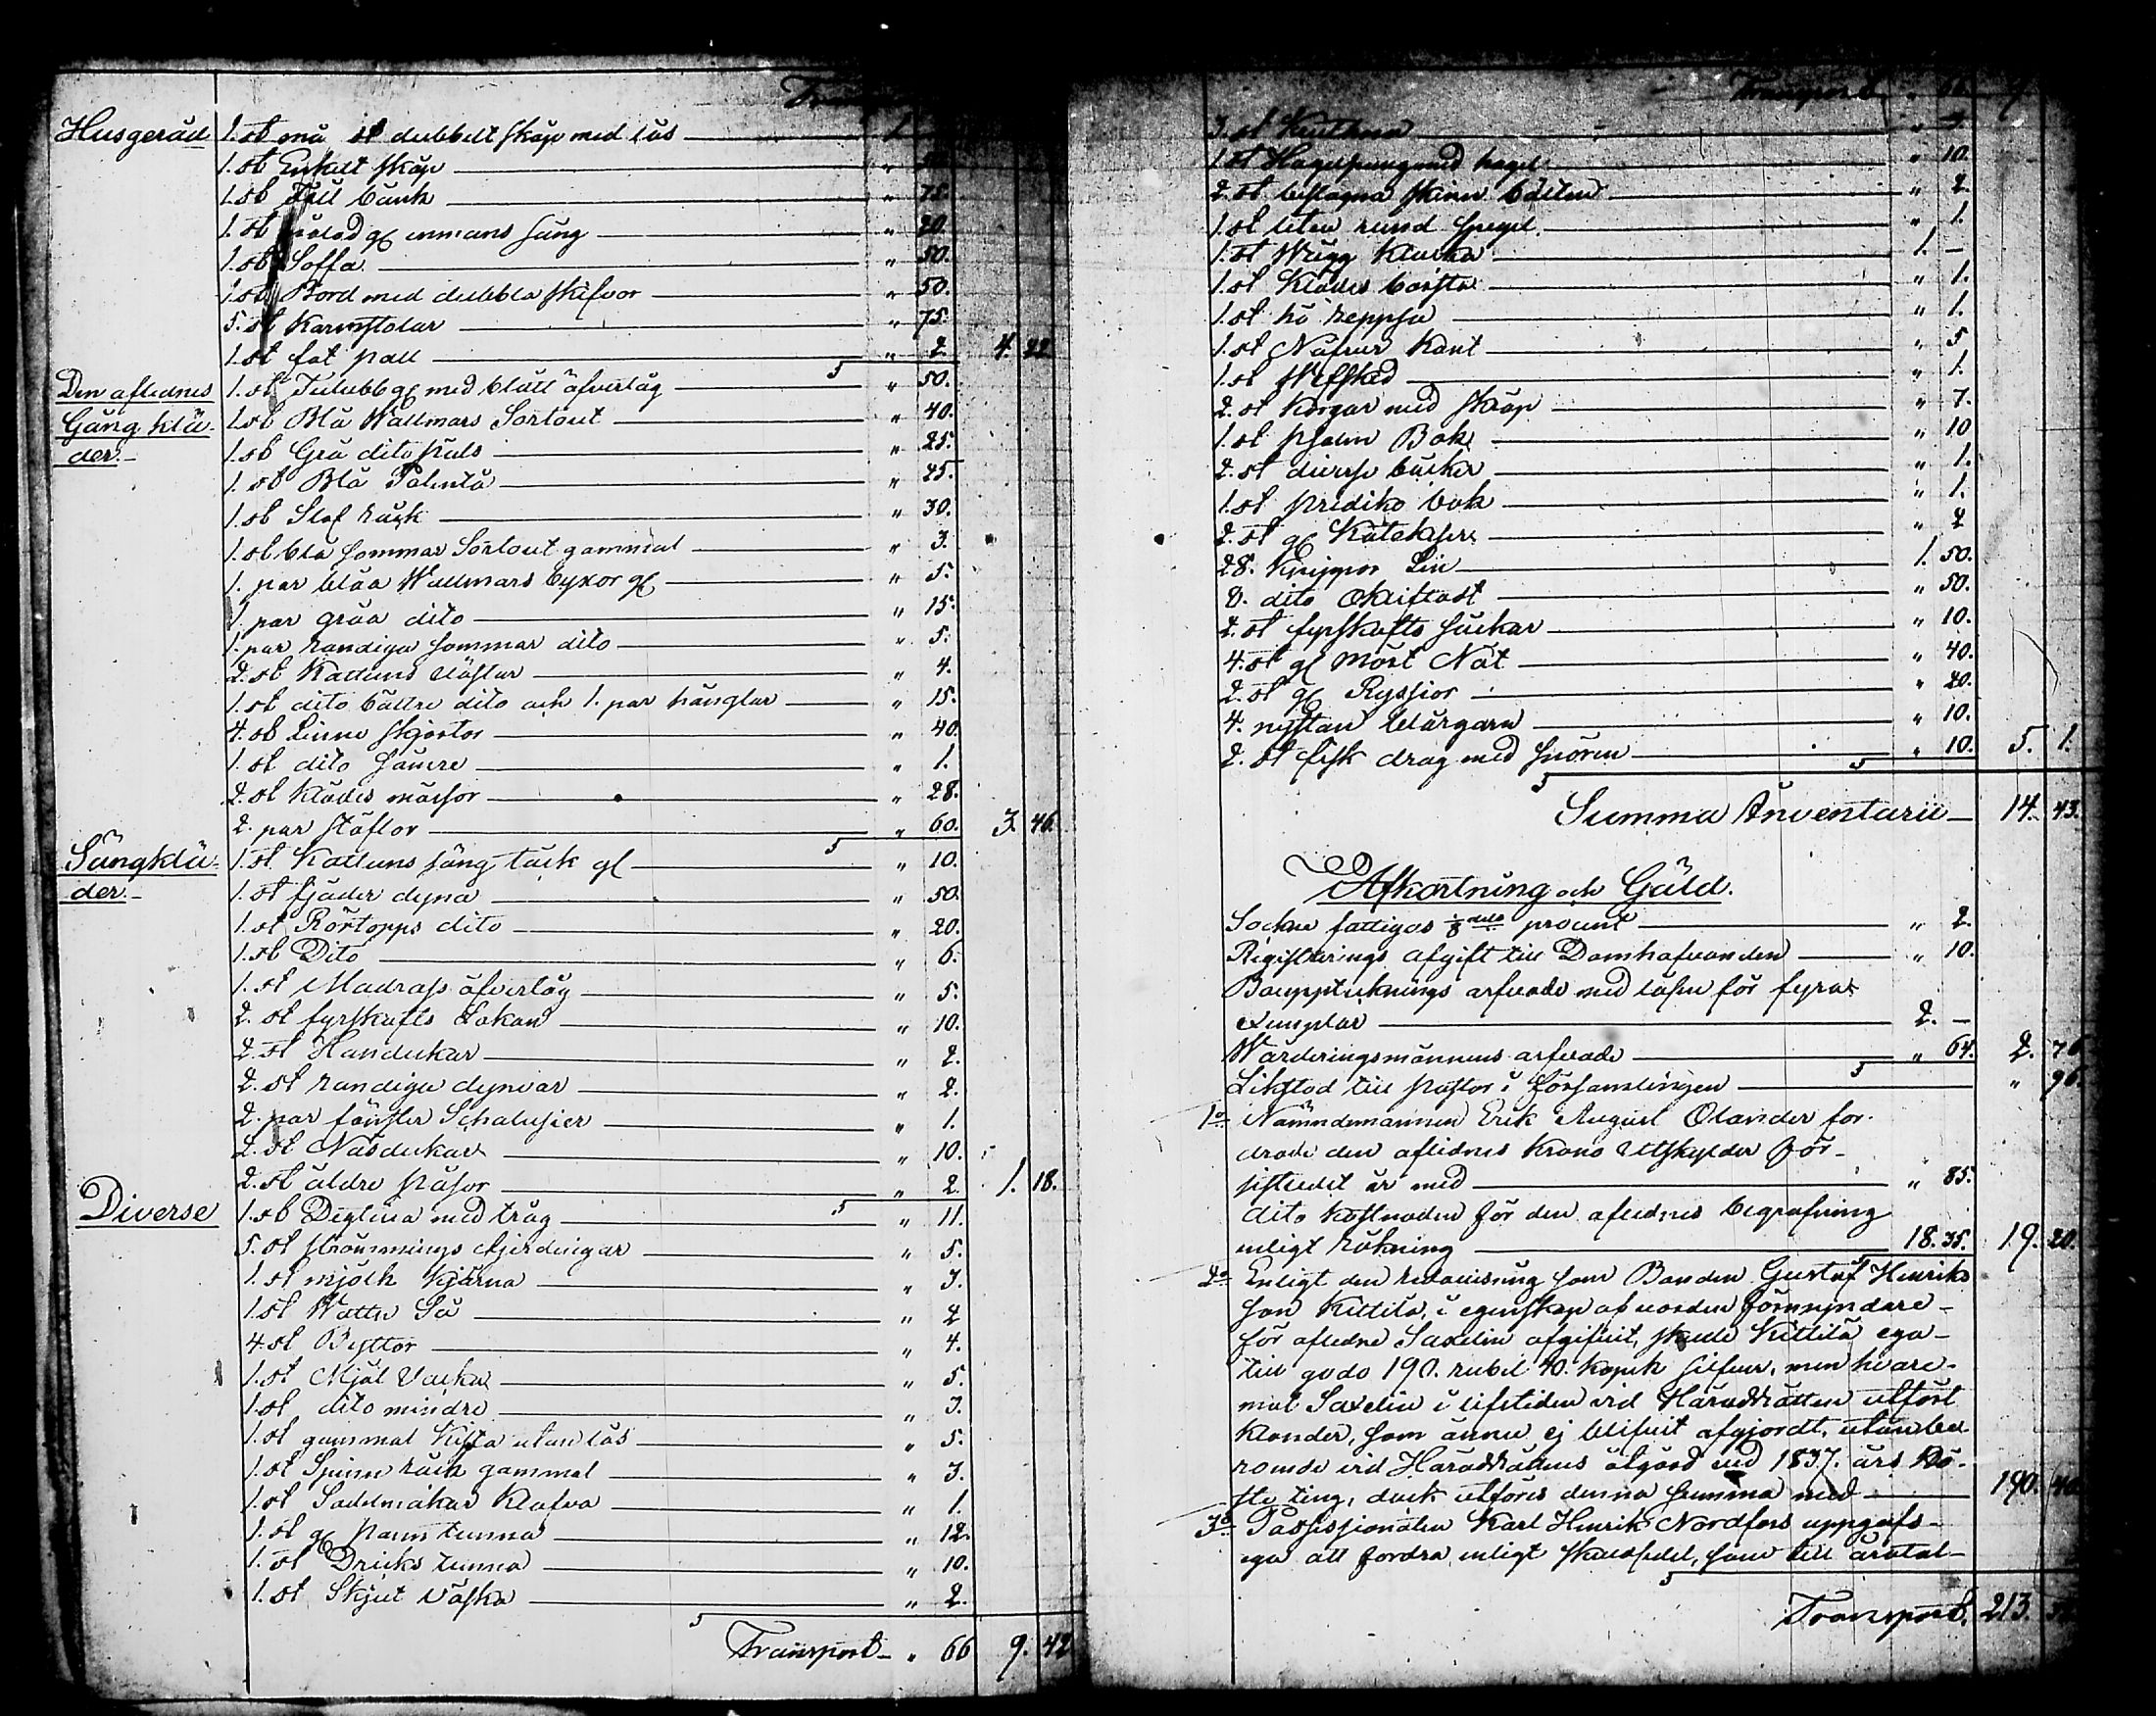 Husgeråd 1. st små st dubbelt skåp med lås 1.
1. st Enkelt skåp "
1. st Fäll bänk " 75.
1. st målad gl emmans säng " 20.
1. st Soffa " 50.
1. st Bord med dubbla skifvor " 50.
5. st Karmstolar " 75.
1. st fot pall " 2. 4. 22
Den aflednes 1. st Tulubb gl med blått öfverlåg " 50.
Gång klä- 1. st Blå Wallmars Sortout " 40.
der.- 1. st Grå dito päls " 25.
1. st Blå Palintå " 25.
1. st Slaf råck " 30.
1. st blå sommar Sortout gammal " 3.
1. par blåa Wallmars byxor gl " 5.
1. par gråa dito " 15.
1. par randiga sommar dito " 5.
2. st Kattuns västar " 4.
1. st dito bättre dito och 1. par hänglar " 15.
4. st Linne skjortor " 40.
1. st dito sämre " 1.
2. st Klädes mössor " 28.
2. par stöflor " 60. 3. 46.
Sängklä- 1. st Kattuns säng täck gl " 10.
der.- 1. st fjäder dyna " 50.
1. st Rörtopps dito " 20.
1. st Dito " 6.
1. st Madrass öfverlåg " 5.
2. st fyrskafts Lakan " 10.
2. st Handukar " 2.
2. st randiga dynvar " 2.
2. par fönster Schalusier " 1.
2. st Näsdukar " 10.
2. st äldre påsar " 2. 1. 18.
Diverse 1. st Degtina med tråg " 11.
5. st strömmings fjerdingar " 5.
1. st mjölk kjärna " 3.
1. st Watten Så " 2
4. st Byttor " 4.
1. st Mjöl Vacka " 5.
1. st dito mindre " 3.
1. st gammal Kista utan lås " 5.
1. st Spinn råck gammal " 3.
1. st Sadelmakar Klofva " 1.
1. st gl pann tunna " 12.
1. st Dricks tunna " 10.
1. st Skjut väska " 2.
Transport " 66 9. 42
Transport " 66 9.
3. st "
1. st Hagelpung med hagel " 10.
2. st beslagna skinn bälten " 2.
1. st liten rund spegel " 1.
1. st Wägg Klocka 1. –
1. st Klädes borste " 1.
1. st hö reppsa " 1.
1. st Nafvar Kant " 5
1. st Wefsked " 1.
2. st Korgar med skrap " 7.
1. st psalm Bok " 10
2. st diverse böcker " 1.
1. st prediko bok " 1.
2. st gl Kateches " 2
28. Knippor Lin 1. 50.
8. dito " 50.
2. st fyrskafts säckar " 10.
4. st gl Mört Nät " 40.
2. st gl Ryssior " 20.
4. nystan blårgarn " 10.
2. st fisk drag med snören " 10. 5. 1.
Summa Inventarii 14. 43.
Afkortning och Gäld.
Sockne fattigas ⅛ dels procent " 2.
Registrerings afgift till Domhafvanden " 10.
Bouppteknings arfvode med lösen för fyra
exemplar 2. –
Wärderingsmännens arfvode " 64. 2. 76
Likstod till pastor i församlingen " 96.
1o Nämndemannen Erik August Olander for-
drade den aflidnes Krono Utskylder för
sistledit år med " 85.
dito kostnaden för den aflednes begrafning
enligt räkning 18. 35. 19. 20.
2o Enligt den redovisning som Bonden Gustaf Henriks
son Kittilä, i egenskap af vorden förmyndare
för aflidne Saxelin afgifvit, skulle Kittilä ega
till godo 190. rubel 40. kopek silfver, men hvare-
mot Saxelin i lifstiden vid Häradsrätten utfört
klander, som ännu ej blifvit afgjordt, utan be-
roende vid Häradsrättens åtgärd vid 1837. års Hö-
ste ting, dock utföres denna summa med 190. 40
3o Possessionaten Karl Henrik Nordfors uppgafs
ega att fordra enligt skuldsedel, som till åratal
Transport. 213.